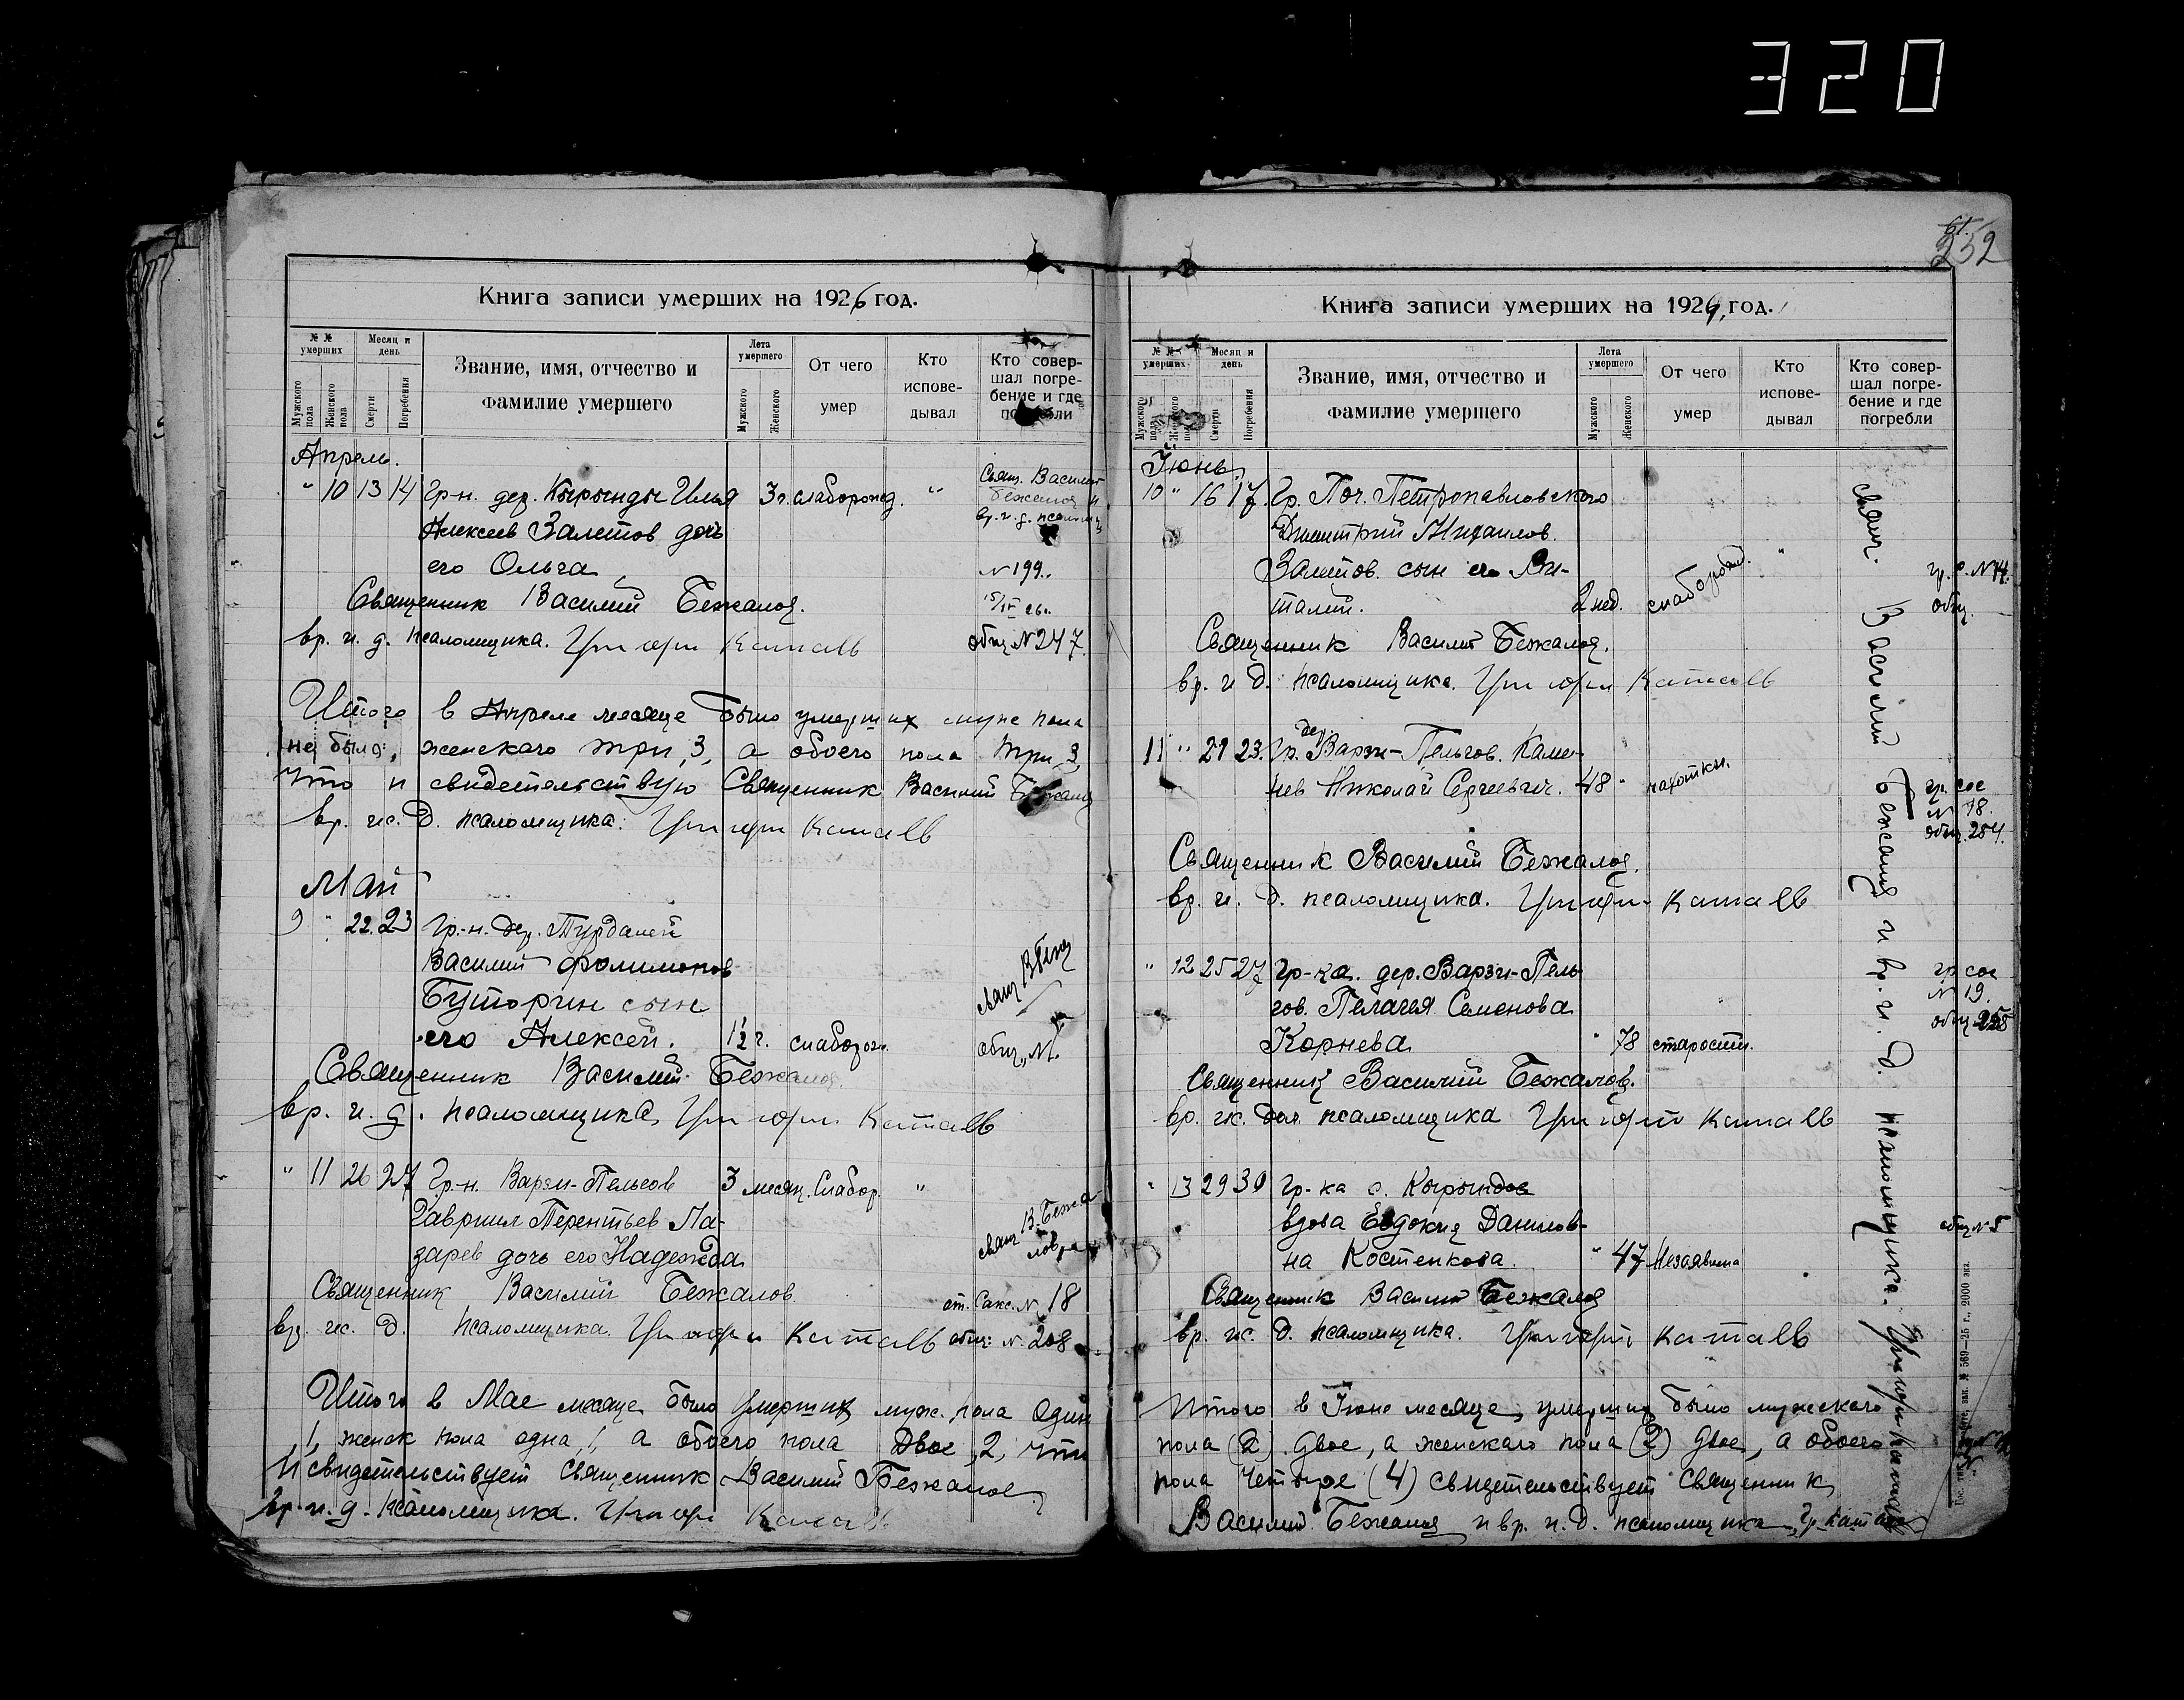 320
Книга записи умерших на 1926 год.
№ № умерших
Месяц и день
Мужского пола
Женского пола
Смерти
Погребения
Звание, имя, отчество и
фамилие умершего
Лета умершего
Мужского
Женского
От чего
умер
Кто
испове-
дывал
Кто совер-
шал погре-
бение и где
погребли
Апрель.
" 10 13 14 Гр-н. дер. Кырынды Илья 3 г. слаборожд. "
Свящ. Василий
Бежалов и
вр. и. д. псаломщ.
Алексеев Залетов дочь
его Ольга
№ 199.
15/IV 26 г.
Священник Василий Бежалов.
вр. и. д. псаломщика. Григорий Катаев
общ № 247.
Итого в Апреле месяце было умерших муж. пола
не было, женскаго три, 3, а обоего пола три, 3,
что и свидетельствую Священник Василий Бежалов
вр. ис. д. псаломщика: Григорий Катаев
Май
9 " 22. 23 Гр.-н. дер. Турдалей
Василий Филимонов
Буторин сын
его Алексей. 1½ г. слаборож.
свящ В Беж
общ. №.
Священник Василий Бежалов.
вр. и. д. псаломщика, Григорий Катаев
" 11 26 27 Гр-н. Варзи-Пельгов 3 месяц. Слабор. "
Гавриил Терентьев Ла-
зарев дочь его Надежда
свящ В. Бежа
лов
Священник Василий Бежалов
№ 18
вр. ис. д. псаломщика. Григорий Катаев общ: № 208
Итого в Мае месяце было умерших муж. пола один
1, женск пола одна, 1, а обоего пола двое, 2, что
и свидетельствует священник Василий Бежалов
вр. и. д. псаломщика. Григорий Катаев
252
Книга записи умерших на 1926 год.
№ № умерших
Месяц и день
Мужского пола
Женского пола
Смерти
Погребения
Звание, имя, отчество и
фамилие умершего
Лета умершего
Мужского
Женского
От чего
умер
Кто
испове-
дывал
Кто совер-
шал погре-
бение и где
погребли
Июнь
10 " 16 17. Гр. Поч. Петропавловскаго
Димитрий Михаилов.
Залетов. сын его Ви-
талий. 2 нед. слаборожд. "
общ.
Священник Василий Бежалов.
вр. и д. псаломщика. Григорий Катаев
11 " 21 23. Гр. дер Варзи-Пельгов. Каме-
нев Николай Сергеевич. 48 " чахотки.
гр. сос
№ 18.
общ. 254.
Священник Василий Бежалов.
вр. и. д. псаломщика. Григорий Катаев
" 12 25 27 Гр-ка. дер. Варзи-Пель
гов. Пелагея Семенова
Корнева " 78 старости.
гр сос
№ 19.
общ 255
Священник Василий Бежалов.
вр. ис. дол. псаломщика Григорий Катаев
" 13 29 30 Гр-ка с. Кырындов
вдова Евдокия Данилов-
на Костенкова. " 47 Незаявлена
общ № 5
Священник Василий Бежалов
вр. ис. д. псаломщика. Григорий Катаев
Итого в Июне месяце, умерших было мужскаго
пола (2) двое, а женскаго пола (2) двое, а обоего
пола четыре (4) свидетельствует Священник
Василий Бежалов и вр. и. д. псаломщика Гр Катаев
свящ. Василий Бежалов и вр. и. д. псаломщика. Григорий Катаев
зак. № 569—25 г., 2000 экз.